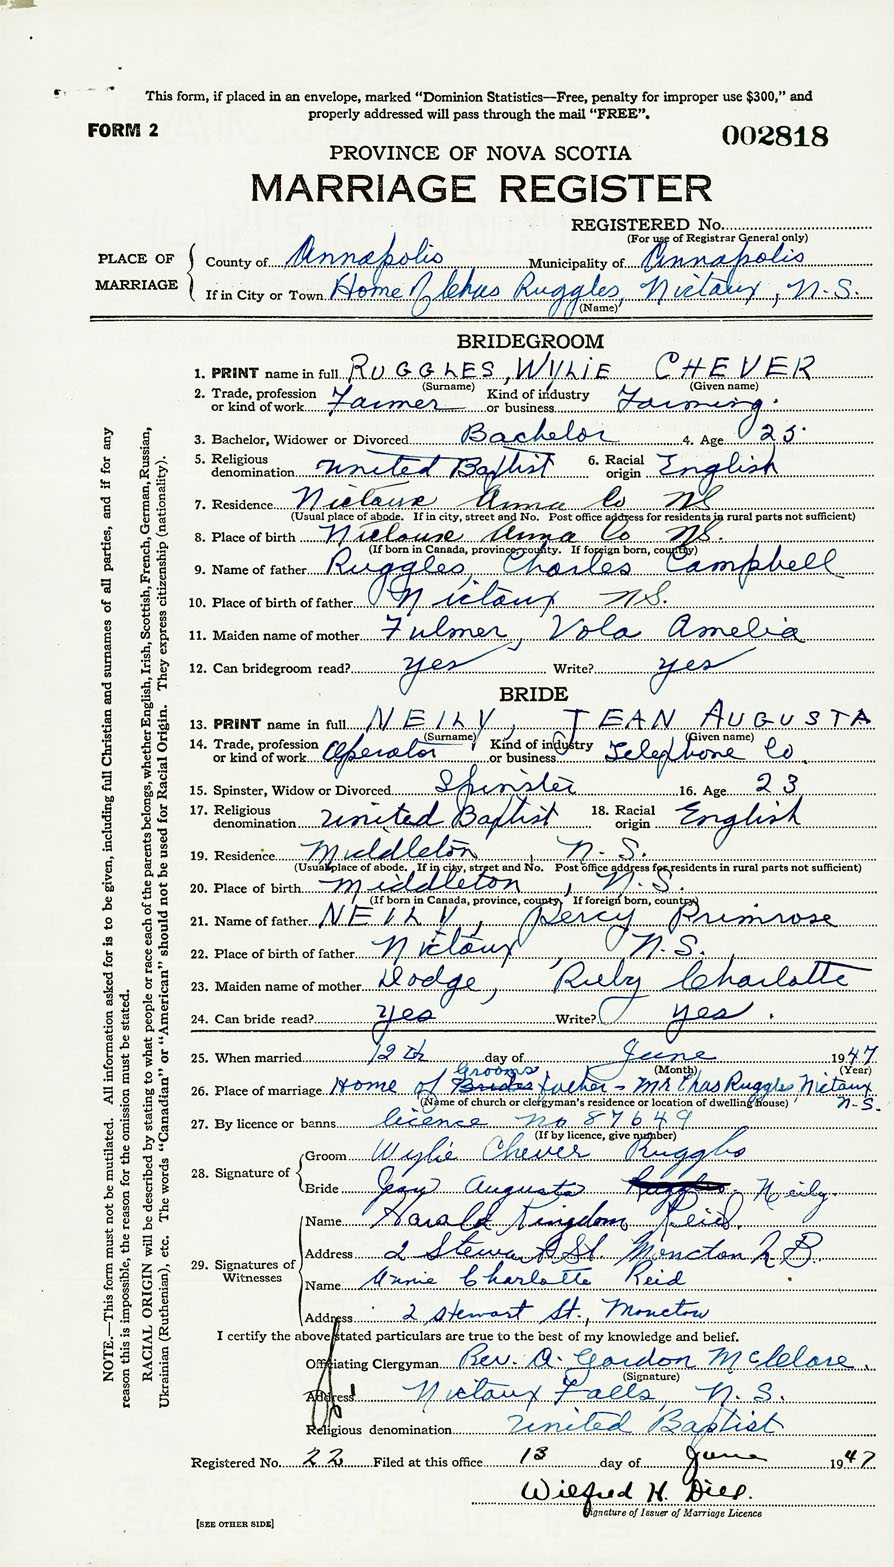 This form, if placed in an envelope, marked “Dominion Statistics—Free, penalty for improper use $300,” and
properly addressed will pass through the mail “FREE”.
FORM 2
002818
PROVINCE OF NOVA SCOTIA
MARRIAGE REGISTER
REGISTERED No.
(For use of Registrar General only)
PLACE OF MARRIAGE
County of Annapolis Municipality of Annapolis
If in City or Town Home of Chas Ruggles, Nictaux, N.S.
(Name)
BRIDEGROOM
1. PRINT name in full RUGGLES, WYLIE CHEVER
(Surname) (Given name)
2. Trade, profession or kind of work Farmer Kind of industry or business Farming.
3. Bachelor, Widower or Divorced Bachelor 4. Age 25
5. Religious denomination United Baptist 6. Racial origin English
7. Residence Nictaux Anna Co NS
(Usual place of abode. If in city, street and No. Post office address for residents in rural parts not sufficient)
8. Place of birth Nictaux Anna Co NS.
(If born in Canada, province, county. If foreign born, country)
9. Name of father Ruggles, Charles Campbell
10. Place of birth of father Nictaux NS.
11. Maiden name of mother Fulmer, Vola Amelia
12. Can bridegroom read? yes Write? yes
BRIDE
13. PRINT name in full NEILY, JEAN AUGUSTA
(Surname) (Given name)
14. Trade, profession or kind of work Operator Kind of industry or business Telephone Co.
15. Spinster, Widow or Divorced Spinster 16. Age 23
17. Religious denomination United Baptist 18. Racial origin English
19. Residence Middleton, N.S.
(Usual place of abode. If in city, street and No. Post office address for residents in rural parts not sufficient)
20. Place of birth Middleton, N.S.
(If born in Canada, province, county. If foreign born, country)
21. Name of father NEILY, Percy Primrose
22. Place of birth of father Nictaux, N.S.
23. Maiden name of mother Dodge, Ruby Charlotte
24. Can bride read? yes Write? yes.
25. When married 12th day of June 1947
(Month) (Year)
26. Place of marriage Home of Brides Grooms father - Mr Chas Ruggles, Nictaux N-S.
(Name of church or clergyman's residence or location of dwelling house)
27. By licence or banns licence no 87649
(If by licence, give number)
28. Signature of
Groom Wylie Chever Ruggles
Bride Jean Augusta Ruggles Neily.
29. Signatures of Witnesses
Name Harald Kingdom Reid.
Address 2 Stewart St Moncton N B
Name Annie Charlotte Reid
Address 2 Stewart St., Moncton
I certify the above stated particulars are true to the best of my knowledge and belief.
Officiating Clergyman Rev. A. Gordon McClare.
(Signature)
Address Nictaux Falls, N.S.
Religious denomination United Baptist
Registered No. 22 Filed at this office 13 day of June 1947
Wilfred H. Dill.
Signature of Issuer of Marriage Licence
[SEE OTHER SIDE]
NOTE.—This form must not be mutilated. All information asked for is to be given, including full Christian and surnames of all parties, and if for any
reason this is impossible, the reason for the omission must be stated.
RACIAL ORIGIN will be described by stating to what people or race each of the parents belongs, whether English, Irish, Scottish, French, German, Russian,
Ukrainian (Ruthenian), etc. The words “Canadian” or “American” should not be used for Racial Origin. They express citizenship (nationality).